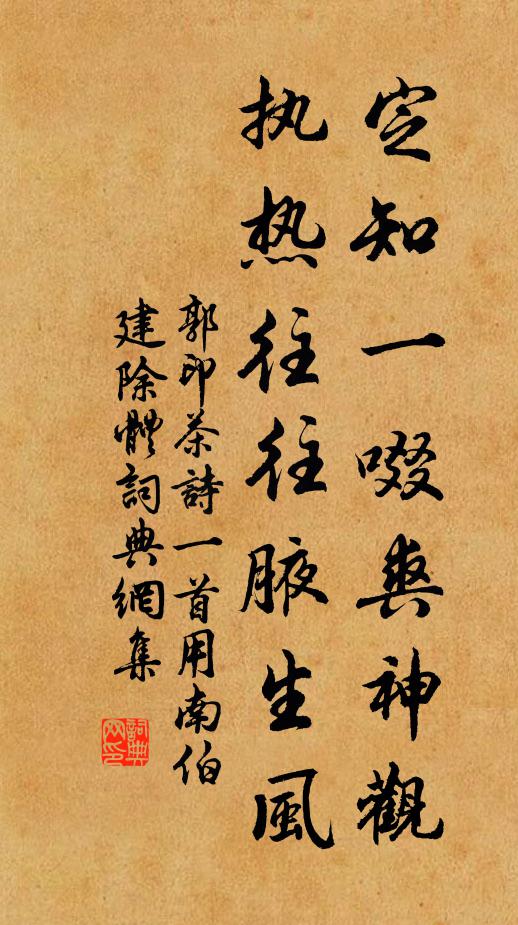 定知一啜爽神觀
执热往往腋生風
郭印茶詩一首用南伯
建除體詞典網集
詞典
网印